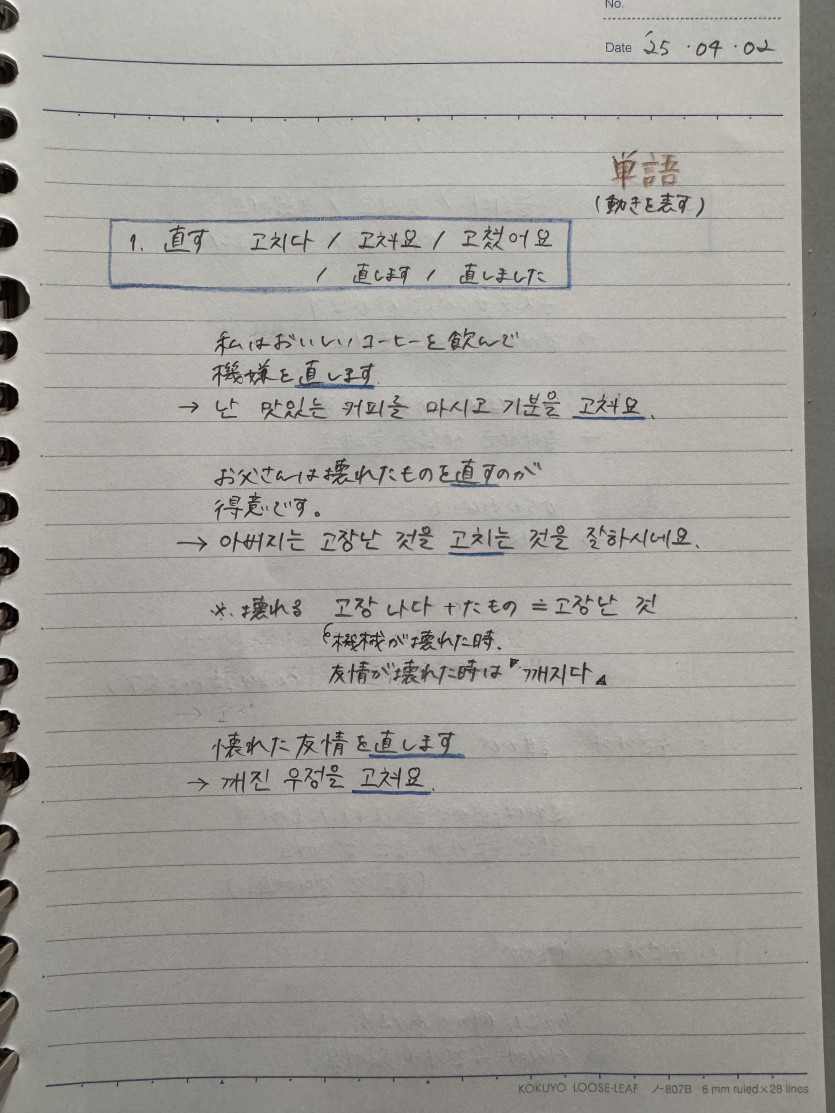 No.
Date '25・04・02
単語
(動きを表す)
1. 直す 고치다 / 고쳐요 / 고쳤어요
/ 直します / 直しました
私はおいしいコーヒーを飲んで
機嫌を直します
→ 난 맛있는 커피를 마시고 기분을 고쳐요.
お父さんは壊れたものを直すのが
得意です。
→ 아버지는 고장난 것을 고치는 것을 잘하시네요.
※. 壊れる 고장 나다 + たもの = 고장난 것
機械が壊れた時.
友情が壊れた時は『깨지다』
懐れた友情を直します
→ 깨진 우정을 고쳐요.
KOKUYO LOOSE-LEAF ノ-807B 6 mm ruled×28 lines